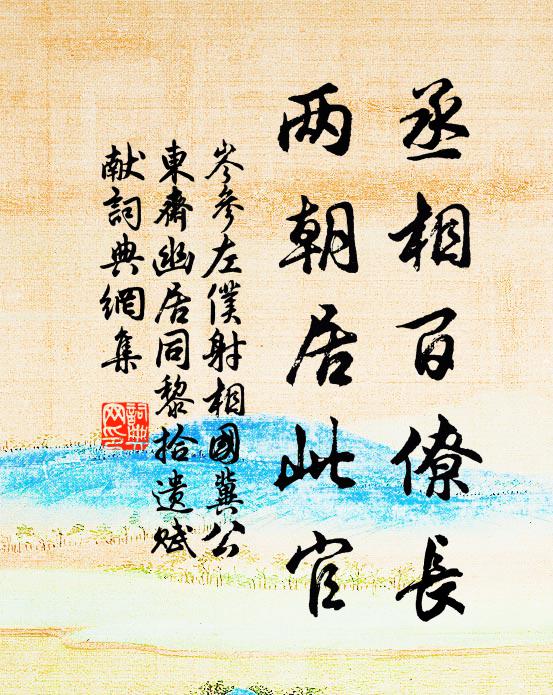 丞相百僚長
两朝居此官
岑參左僕射相國冀公
東齋幽居同黎拾遺賦
献詞典網集
詞典網印